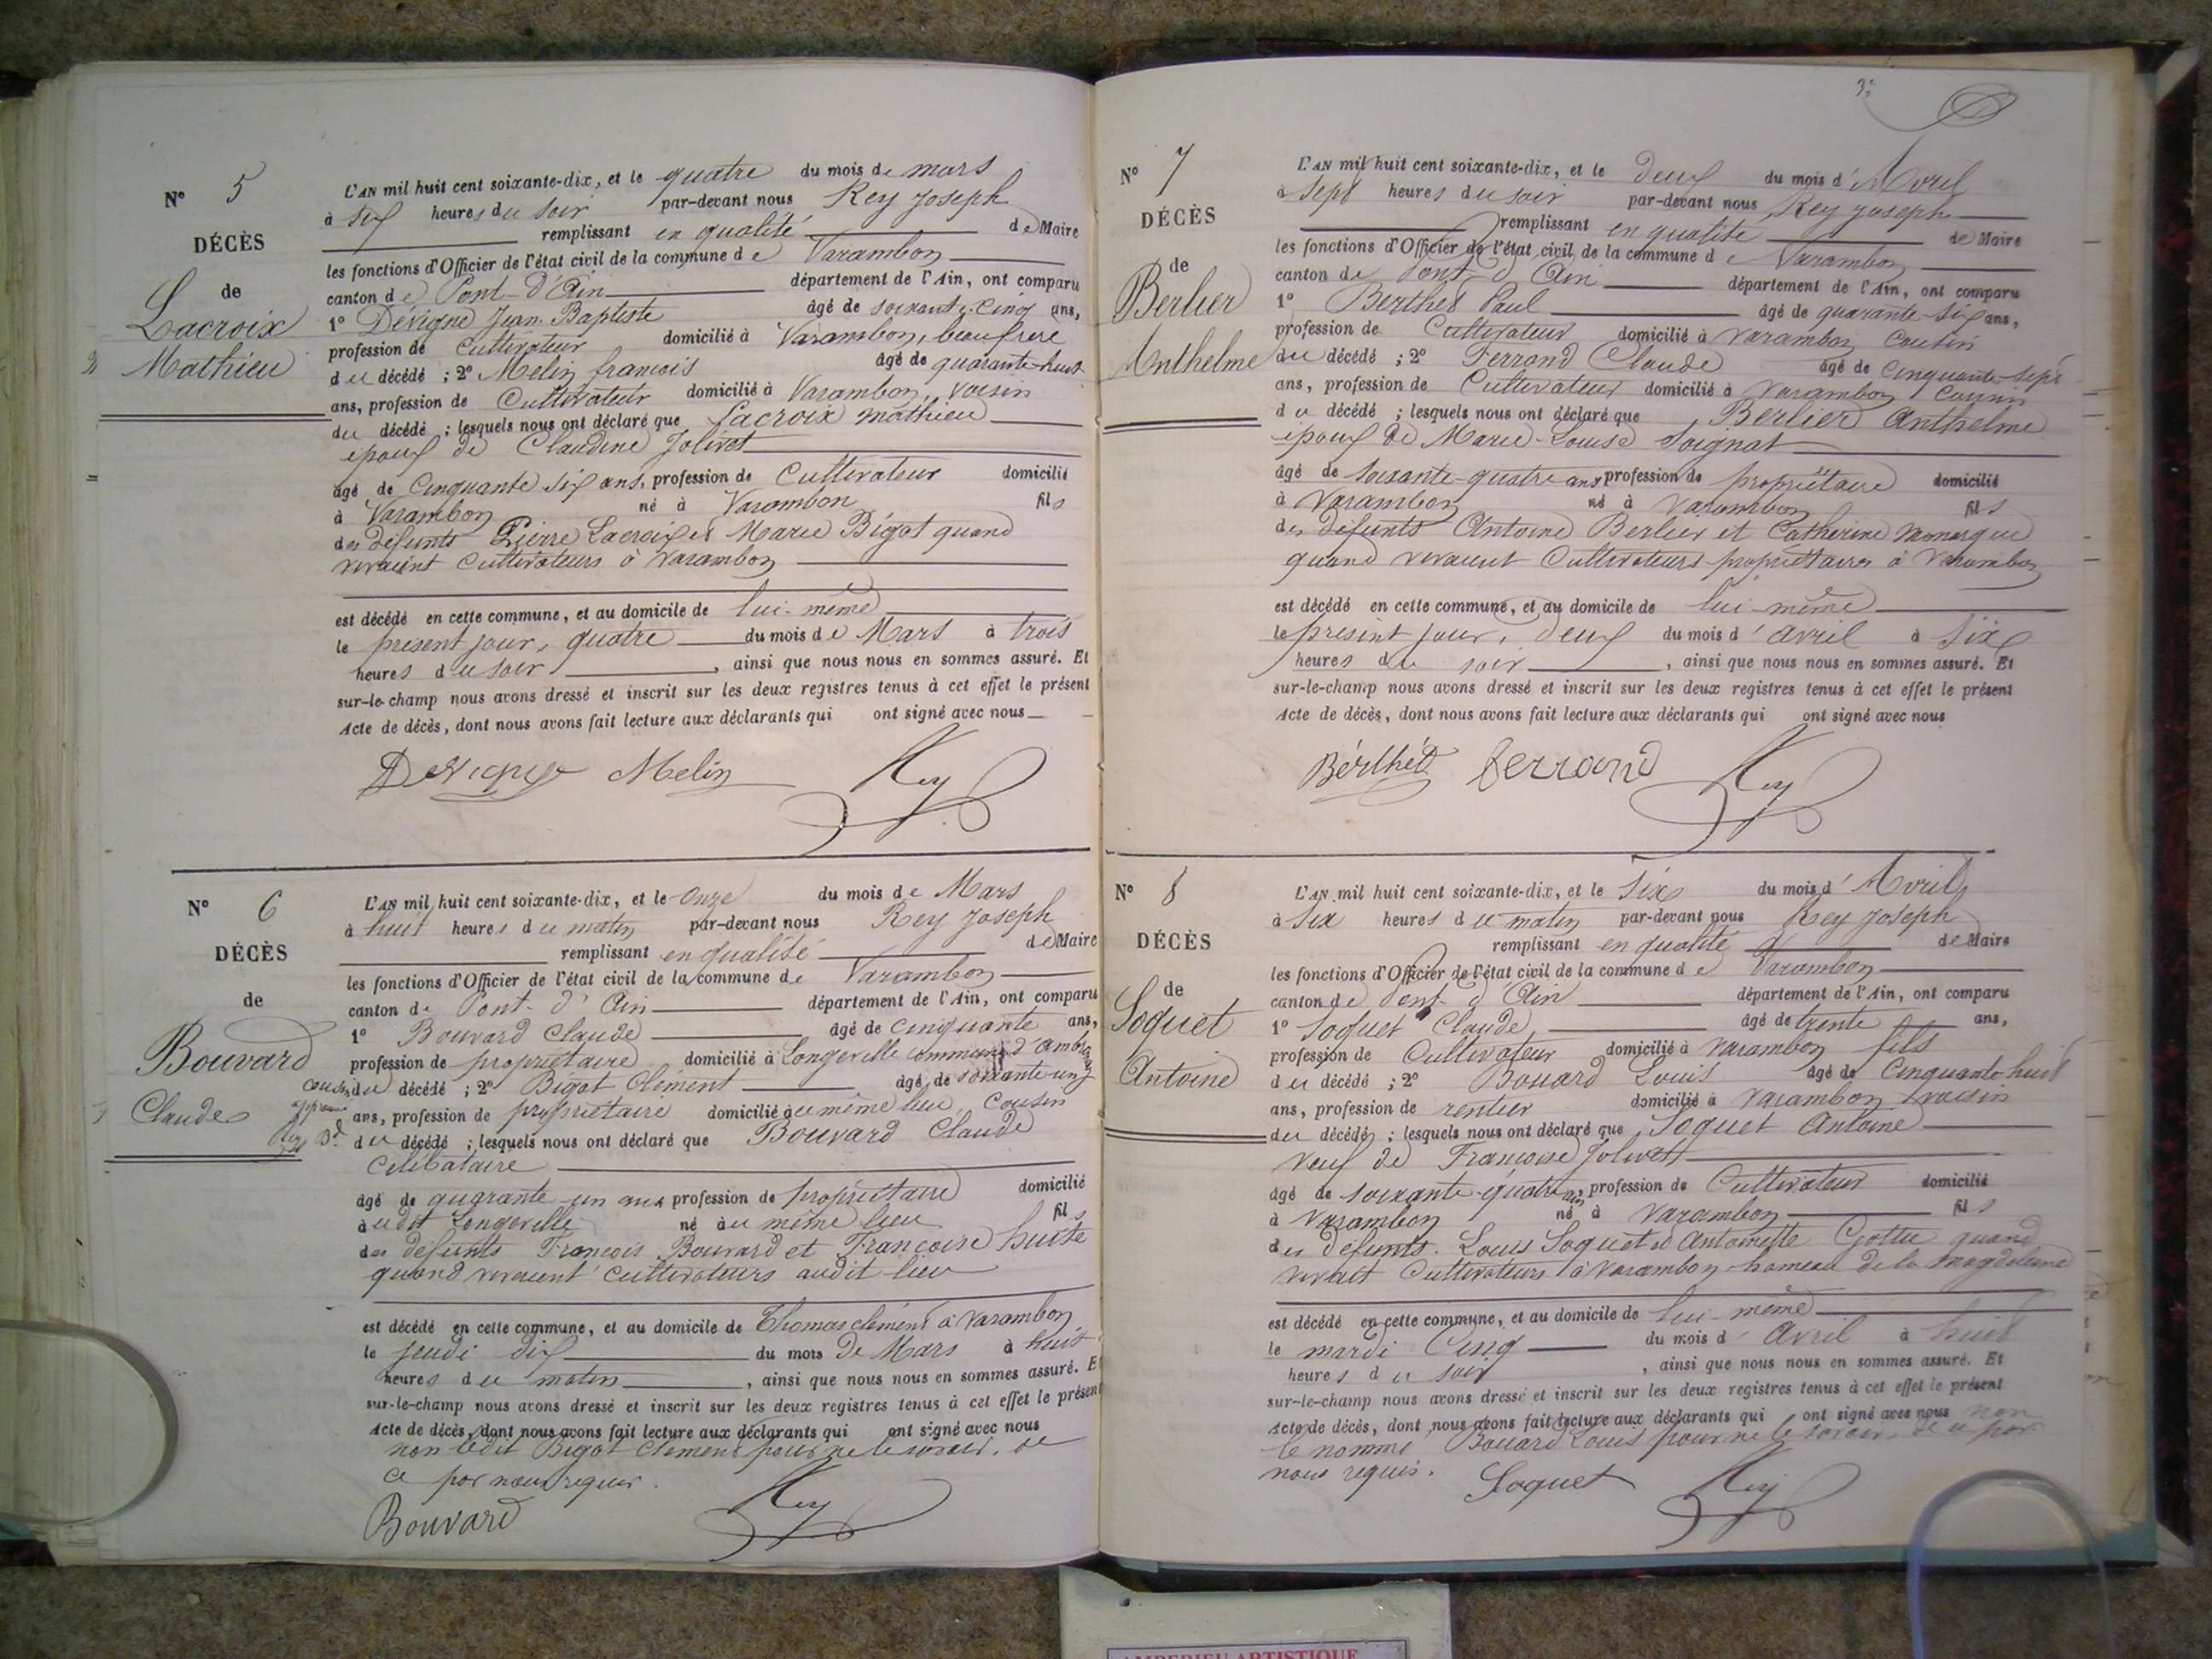 N° 5
DÉCÈS
de
Lacroix
Mathieu
L'AN mil huit cent soixante-dix, et le quatre du mois de mars
à six heures du soir par-devant nous Rey Joseph
remplissant en qualité de Maire
les fonctions d'Officier de l'état civil de la commune de Varambon
canton de Pont-d'Ain département de l'Ain, ont comparu
1° Dévigne Jean-Baptiste âgé de soixante-cinq ans,
profession de Cultivateur domicilié à Varambon, beaufrere
du décédé ; 2° Melin francois âgé de quarante-huit
ans, profession de Cultivateur domicilié à Varambon, voisin
du décédé ; lesquels nous ont déclaré que Lacroix mathieu
époux de Claudine Jolivet
âgé de Cinquante six ans, profession de Cultivateur domicilié
à Varambon né à Varambon fils
des défunts Pierre Lacroix et Marie Bigot quand
vivaient cultivateurs à Varambon
est décédé en cette commune, et au domicile de lui-même
le présent jour, quatre du mois de Mars à trois
heures du soir, ainsi que nous nous en sommes assuré. Et
sur-le-champ nous avons dressé et inscrit sur les deux registres tenus à cet effet le présent
Acte de décès, dont nous avons fait lecture aux déclarants qui ont signé avec nous
Devigne Melin Rey
N° 6
DÉCÈS
de
Bouvard
Claude
L'AN mil huit cent soixante-dix, et le onze du mois de Mars
à huit heures du matin par-devant nous Rey Joseph
remplissant en qualité de Maire
les fonctions d'Officier de l'état civil de la commune de Varambon
canton de Pont-d'Ain département de l'Ain, ont comparu
1° Bouvard Claude âgé de cinquante ans,
profession de propriétaire domicilié à Longeville commune d'Ambronay
cousin du décédé ; 2° Bigot Clément âgé de soixante-un
ans, profession de propriétaire domicilié au même lieu, Cousin
du décédé ; lesquels nous ont déclaré que Bouvard Claude
Célibataire
âgé de quarante-un ans profession de propriétaire domicilié
audit Longeville né au même lieu fils
des défunts François Bouvard et Françoise huite
quand vivaient cultivateurs audit lieu
est décédé en cette commune, et au domicile de Thomas clément à Varambon
le jeudi dix du mois de Mars à huit
heures du matin, ainsi que nous nous en sommes assuré. E
sur-le-champ nous avons dressé et inscrit sur les deux registres tenus à cet effet le présent
Acte de décès, dont nous avons fait lecture aux déclarants qui ont signé avec nous
non ledit Bigot Clement pour ne le savoir, de
ce par nous requis.
Bouvard Rey
N° 7
DÉCÈS
de
Berlier
Anthelme
L'AN mil huit cent soixante-dix, et le deux du mois d'Avril
à sept heures du soir par-devant nous Rey Joseph
remplissant en qualité de Maire
les fonctions d'Officier de l'état civil de la commune de Varambon
canton de Pont-d'Ain département de l'Ain, ont comparu
1° Berthet Paul âgé de quarante-six ans,
profession de Cultivateur domicilié à Varambon Cousin
du décédé ; 2° Ferrand Claude âgé de Cinquante-sept
ans, profession de Cultivateur domicilié à Varambon Cousin
du décédé ; lesquels nous ont déclaré que Berlier Anthelme
époux de Marie-Louise Soignat
âgé de soixante-quatre ans profession de propriétaire domicilié
à Varambon né à Varambon fils
des défunts Antoine Berlier et Catherine Monarque
quand vivaient Cultivateurs-propriétaires à Varambon
est décédé en cette commune, et au domicile de lui-même
le présent jour, deux du mois d'avril à six
heures du soir, ainsi que nous nous en sommes assuré. Et
sur-le-champ nous avons dressé et inscrit sur les deux registres tenus à cet effet le présent
Acte de décès, dont nous avons fait lecture aux déclarants qui ont signé avec nous
Bérthét ferrand Rey
N° 8
DÉCÈS
de
Soquet
Antoine
L'AN mil huit cent soixante-dix, et le six du mois d'Avril
à six heures du matin par-devant nous Rey Joseph
remplissant en qualité de Maire
les fonctions d'Officier de l'état civil de la commune de Varambon
canton de Pont-d'Ain département de l'Ain, ont comparu
1° Soquet Claude âgé de trente ans,
profession de Cultivateur domicilié à Varambon fils
du décédé ; 2° Bouard Louis âgé de Cinquante huit
ans, profession de rentier domicilié à Varambon voisin
du décédé ; lesquels nous ont déclaré que Soquet Antoine
veuf de Françoise Jolivet
âgé de soixante-quatre ans, profession de Cultivateur domicilié
à Varambon né à Varambon fils
des défunts Louis Soquet et Antoinette Gottu quand
vivait Cultivateurs à Varambon hameau de la Magdeleine
est décédé en cette commune, et au domicile de lui-même
le mardi Cinq du mois d'Avril à huit
heures du soir, ainsi que nous nous en sommes assuré. Et
sur-le-champ nous avons dressé et inscrit sur les deux registres tenus à cet effet le présent
Acte de décès, dont nous avons fait lecture aux déclarants qui ont signé avec nous non
le nommé Bouard Louis pour ne le savoir, de ce par
nous requis.
Soquet Rey